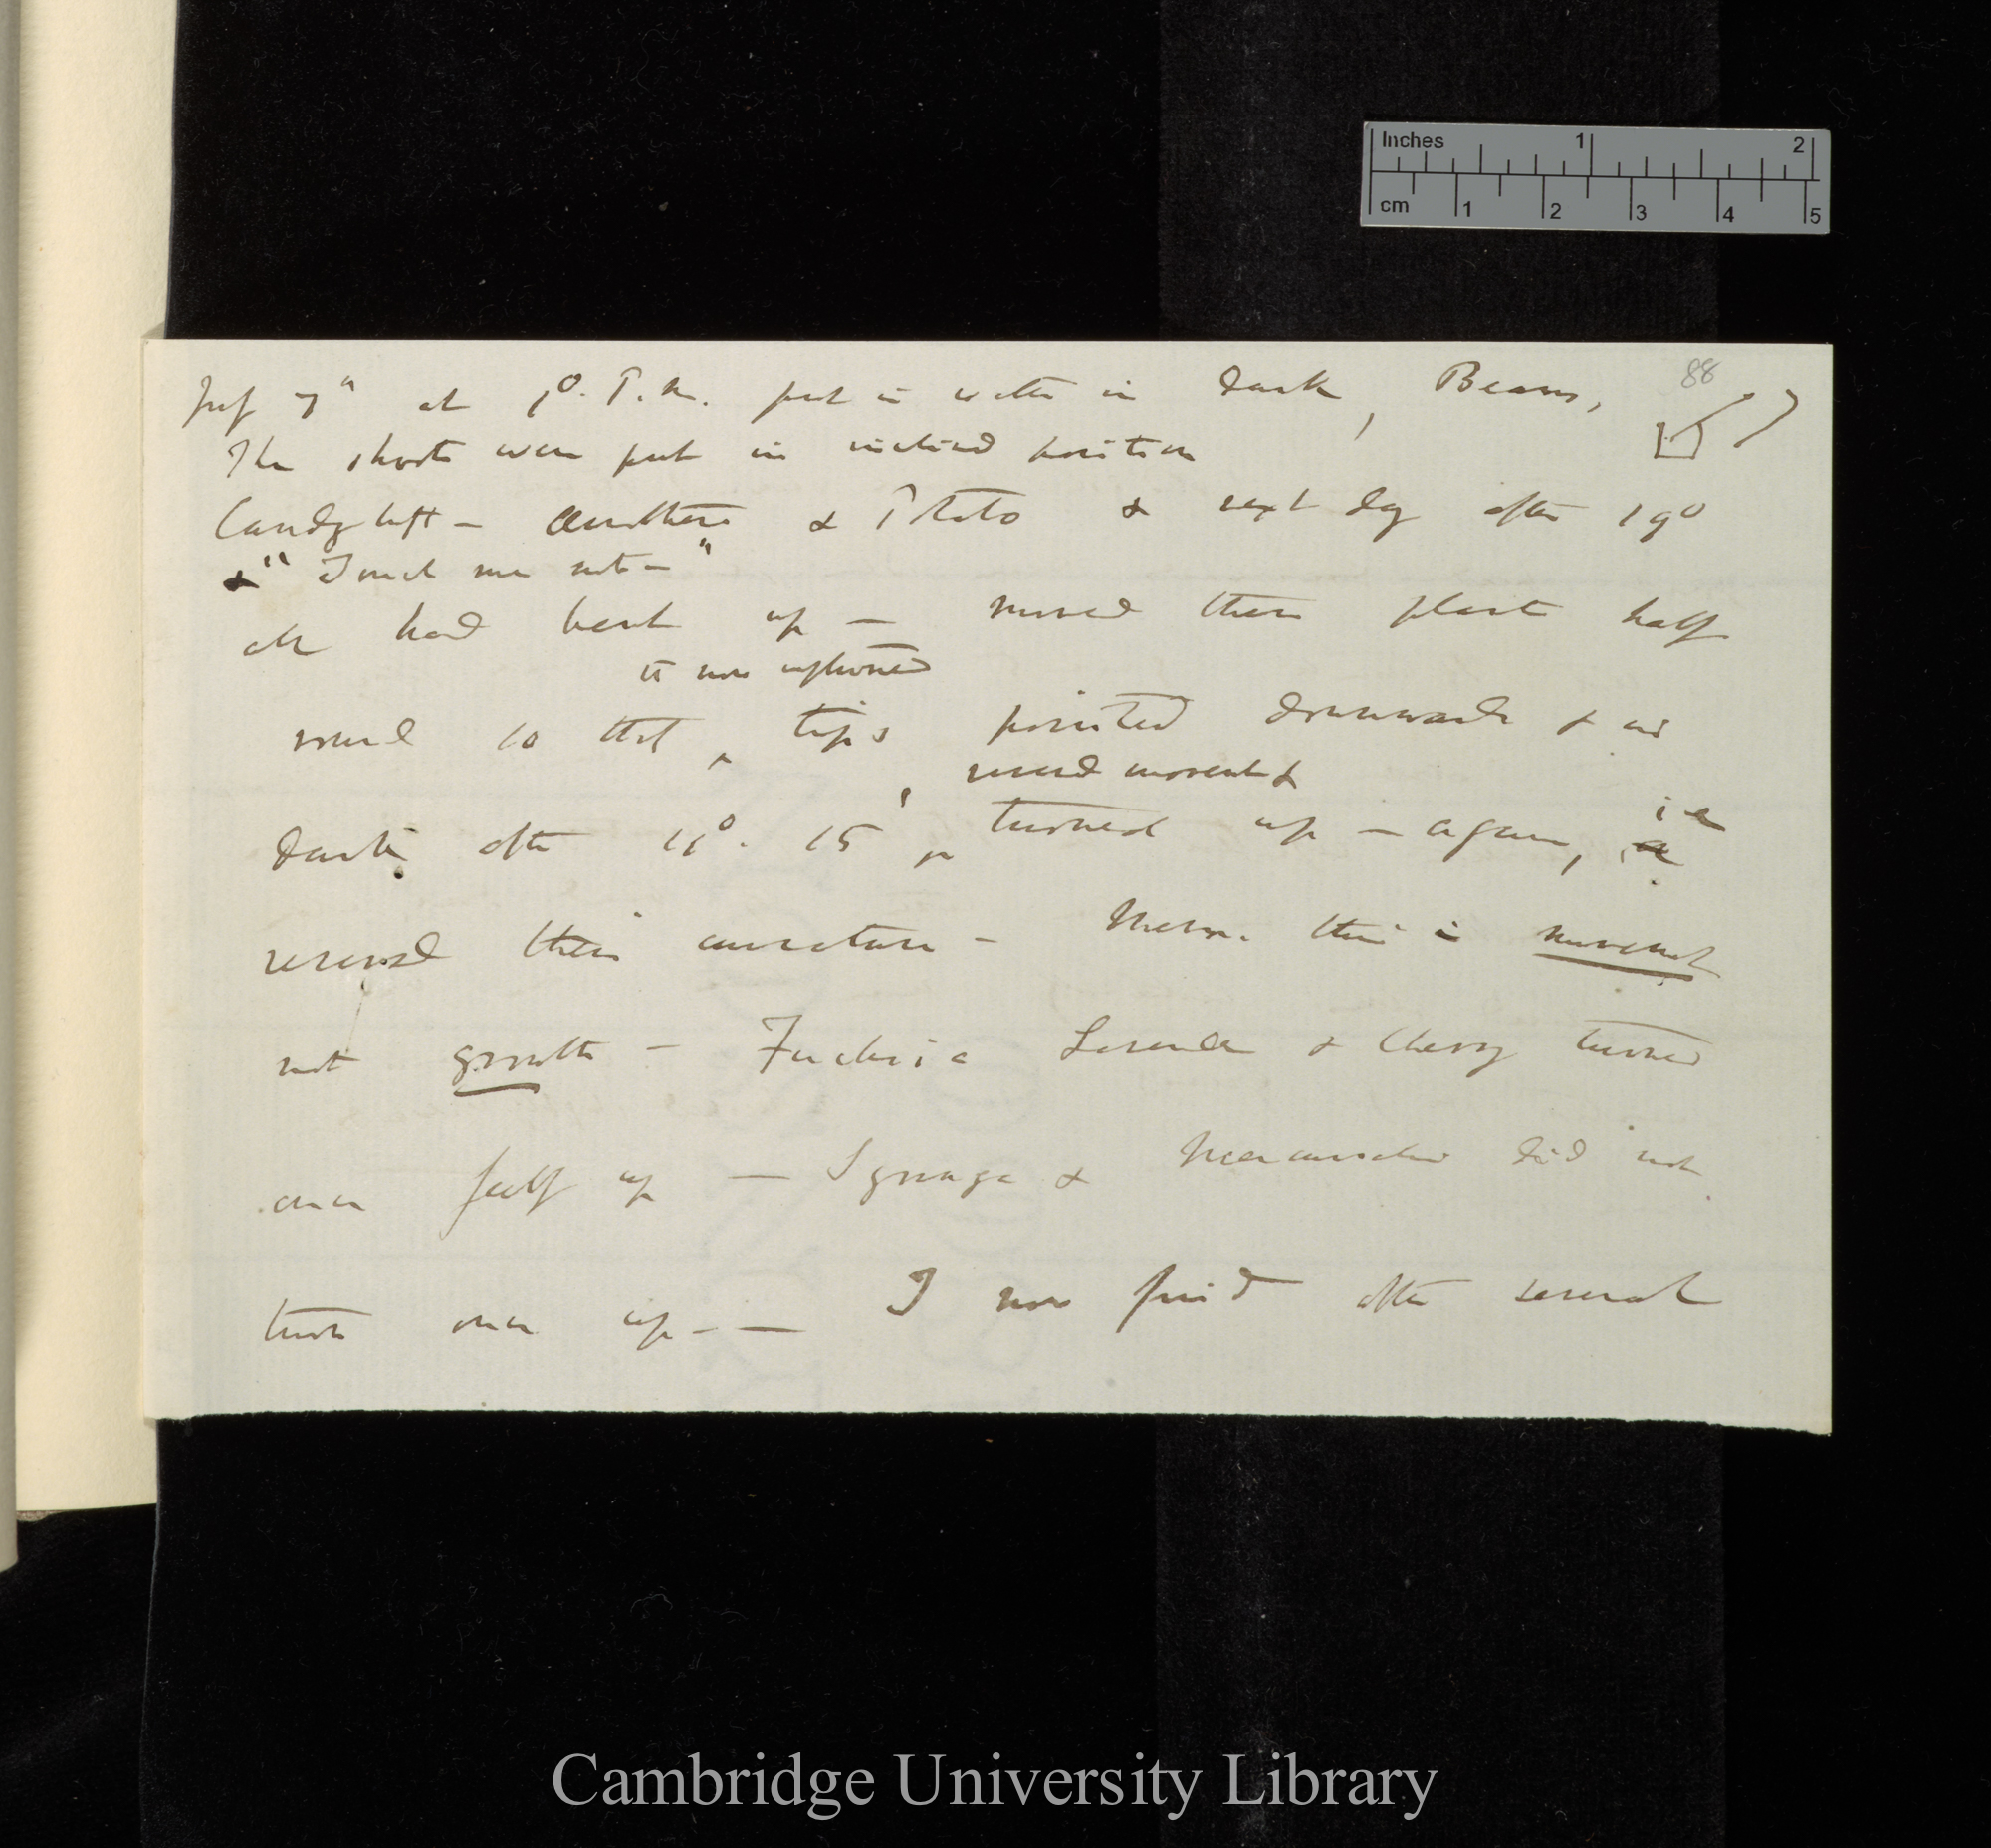 Inches 1 2
cm 1 2 3 4 5
88
July 7" at P.M. put in water in dark, Beans,
The shoots were put in inclined position
Candytuft — Œnothera & Potato & next day after 19°
& "Touch me not—"
all had bent up — moved these plants half
to now upturned
round so that ^ tips pointed downwards & in
round movent &
dark; after 15' ^ turned up — again, ie
reversed their curvature — Mem. this is movement
not growth — Fuchsia & Cherry turned
over up — Syringa & did not
turn over up — — I now find after several
Cambridge University Library